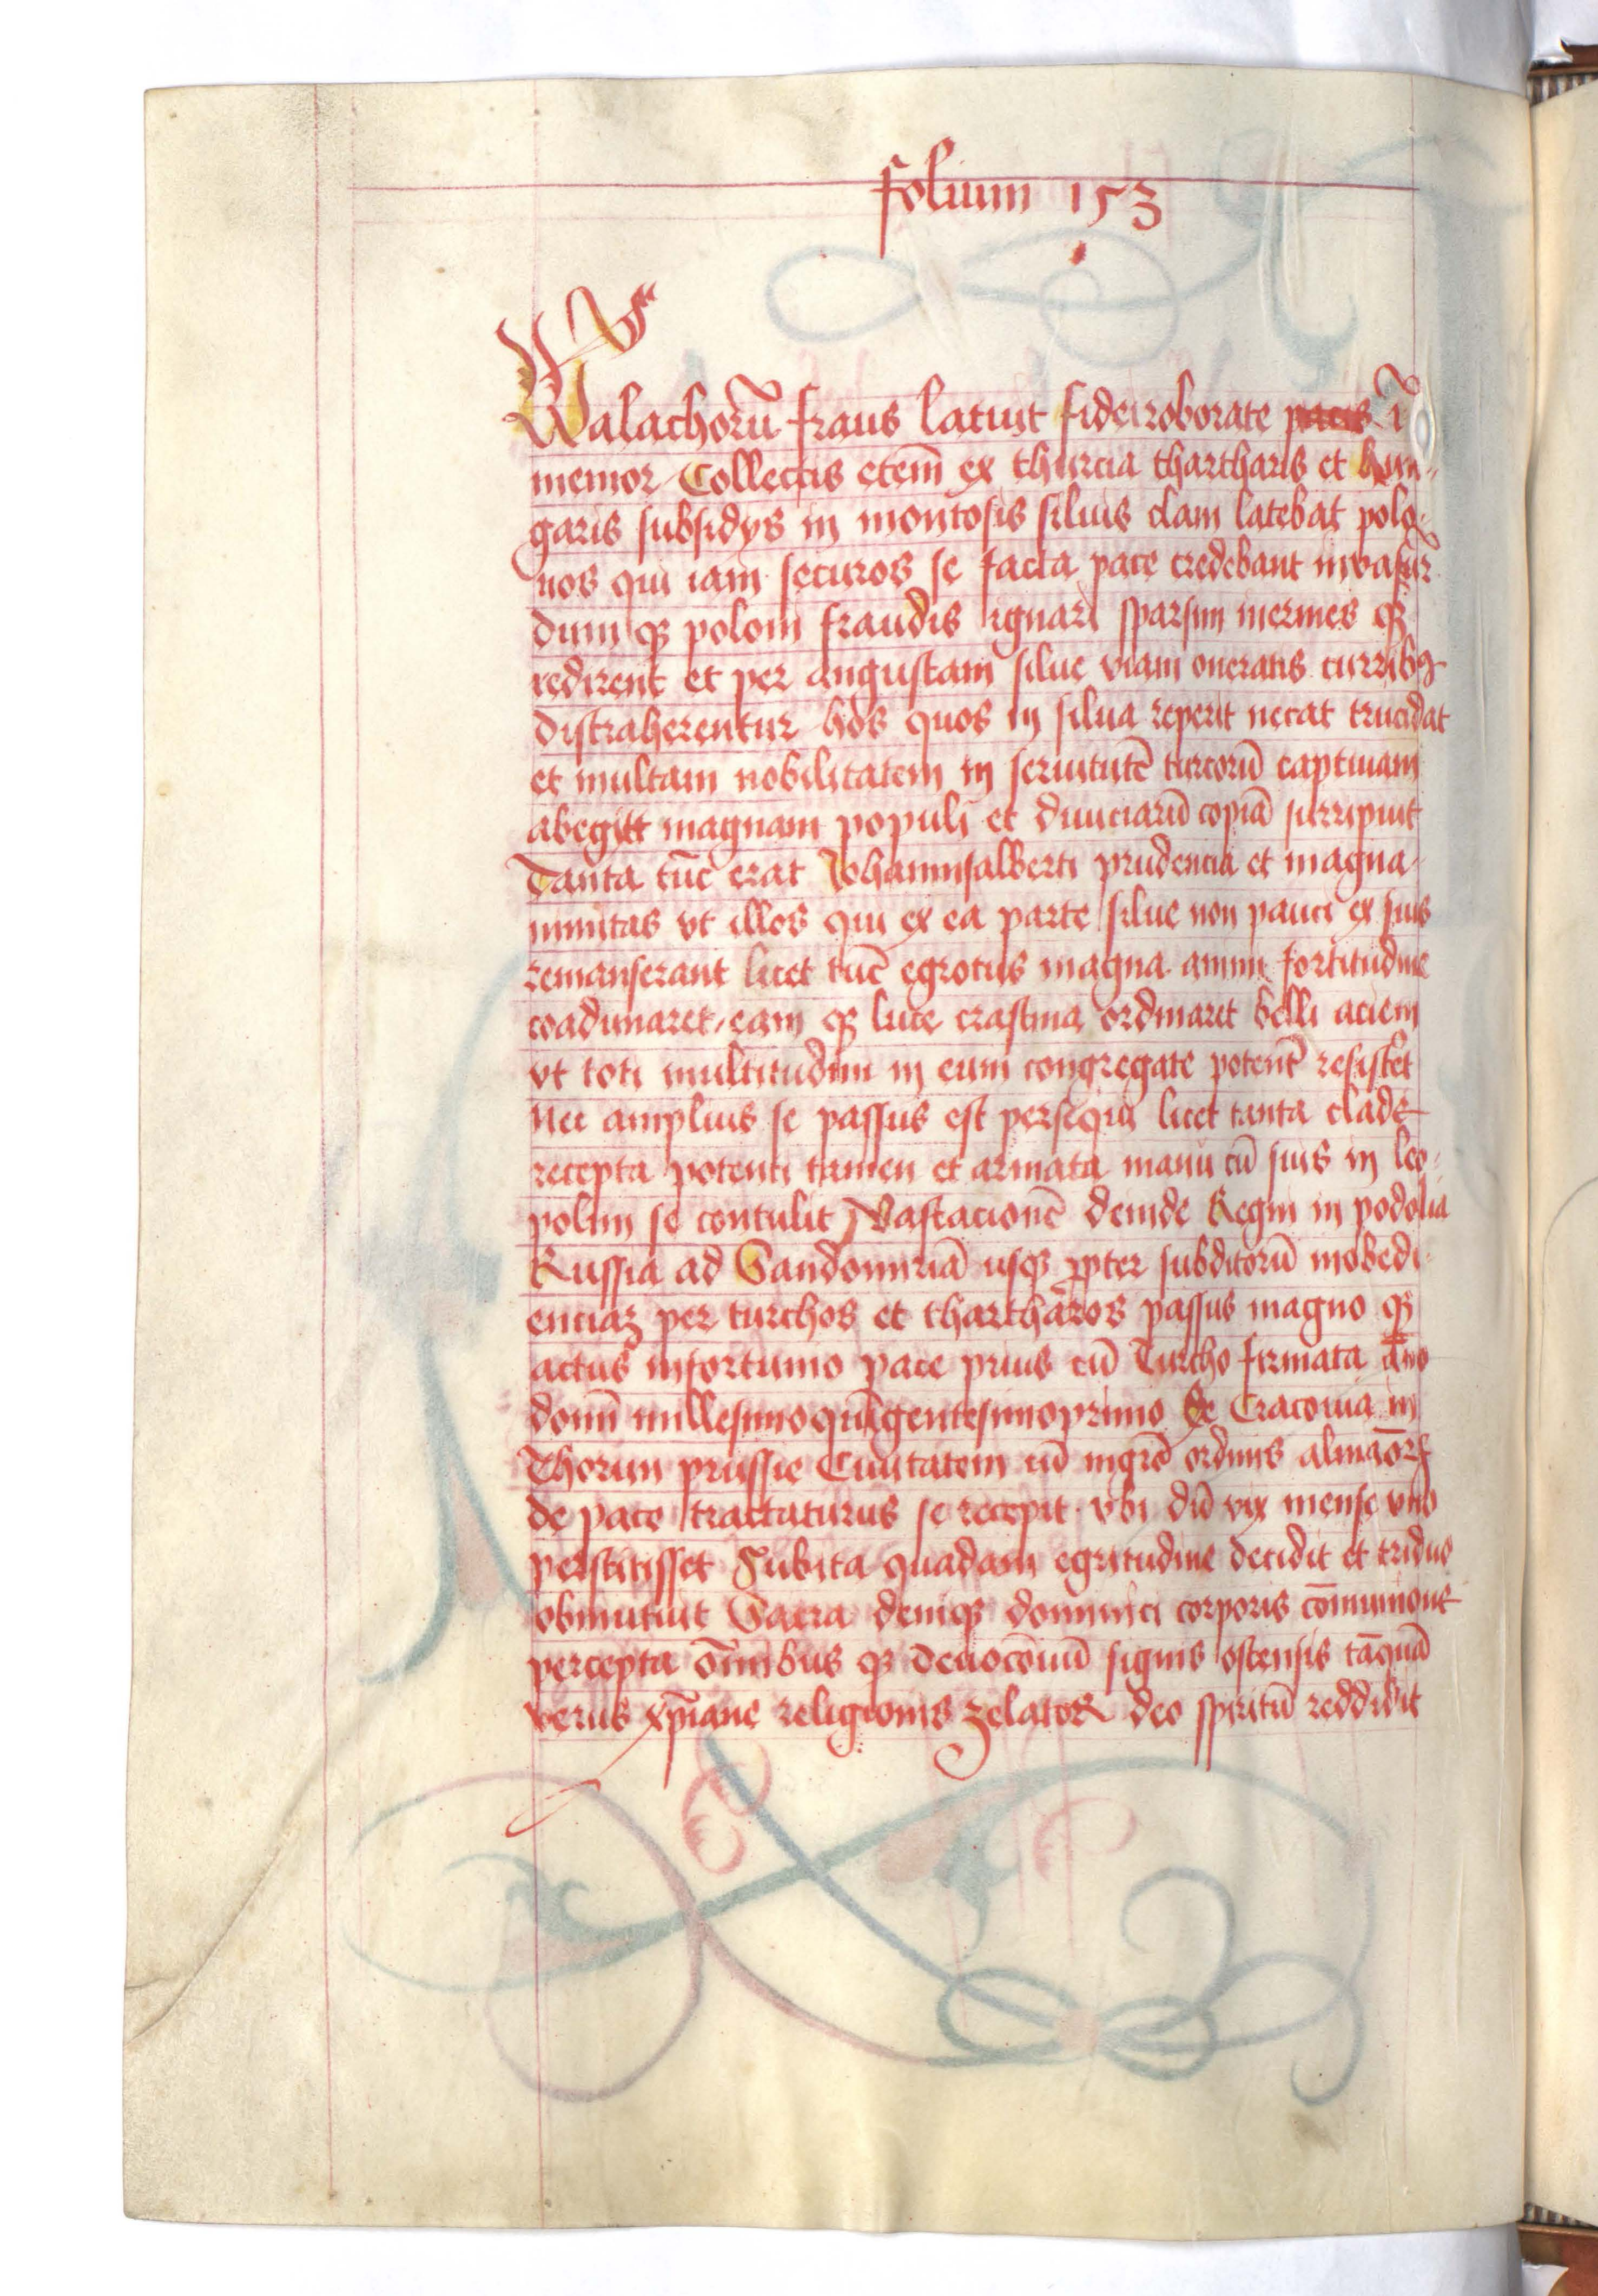 folium 153
Walachorū fraus latuit fidei roborate pacis ī
memor Collectis etenī ex thurcia thartharis et hun-
garis subsidys in montosis siluis clam latebat polo-
nos qui iam securos se facta pace credebant invasur
dum qꝫ poloni fraudis ignari sparsim inermes qꝫ
redirent et per angustam silue viam oneratis curribꝯ
distraherentur hos quos in silua reperit necat trucidat
et multam nobilitatem in seruitutē turcorū captiuam
abegitt magnam populi et diuiciarū copiā surripuit
Tanta tūc erat Johannisalberti prudencia et magna-
nimitas vt illos qui ex ea parte silue non pauci ex suis
remanserant licet tūc egrotus magna animi fortitudine
coadunaret eam qꝫ luce crastina ordinaret belli aciem
vt toti multitudini in eum congregate potent͛ resistet͛
Nec amplius se passus est persequi licet tanta clade
recepta potenti tamen et armata manu cū suis in leo-
polim se contulit Vastacionē deinde Regni in podolia
Russia ad Sandomiriā usqꝫ ꝓpter subditorū inobedi-
enciaꝫ per turchos et thartharos passus magno qꝫ
actus infortunio pace prius cū Turcho firmata āno
domī millesimoquīgentesimoprimo de Cracouia in
Thorun prussie Ciuitatem cū mgrō ordinis almāorꝝ
de pace tractaturus se recepit vbi dū vix mense vno
perstitisset Subita quadam egritudine decidit et triduo
obmutuit Sacra deniqꝫ dominici corporis cōmunione
percepta ōmnibus qꝫ deuocōnū signis ostensis tāquā
verus xp̄iane religionis zelator deo spiritū reddidit